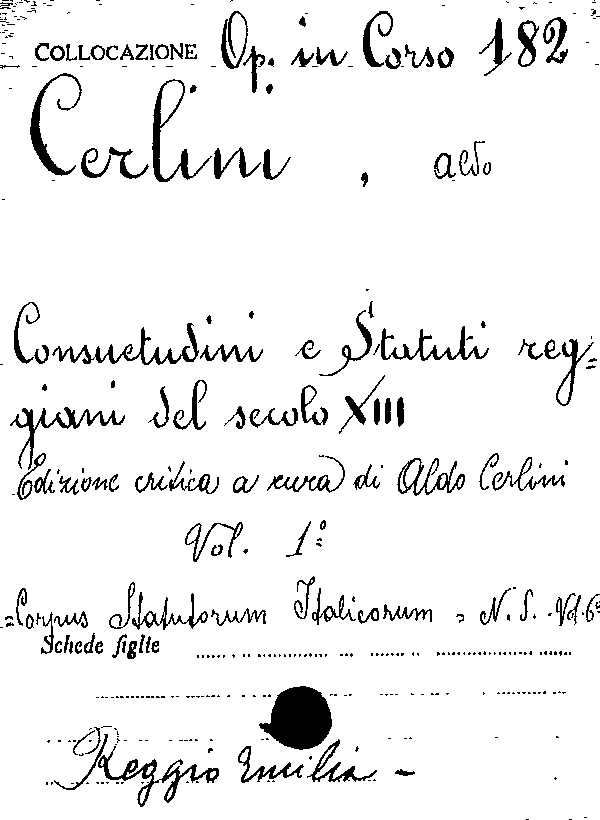 COLLOCAZIONE Op. in Corso 182
Cerlini, aldo
Consuetudini e Statuti reg=
giani del secolo XIII
Edizione critica a cura di Aldo Cerlini
Vol. 1º
=Corpus Statutorum Italicorum = N. S. Vol. 6º
Schede figlie
Reggio Emilia -